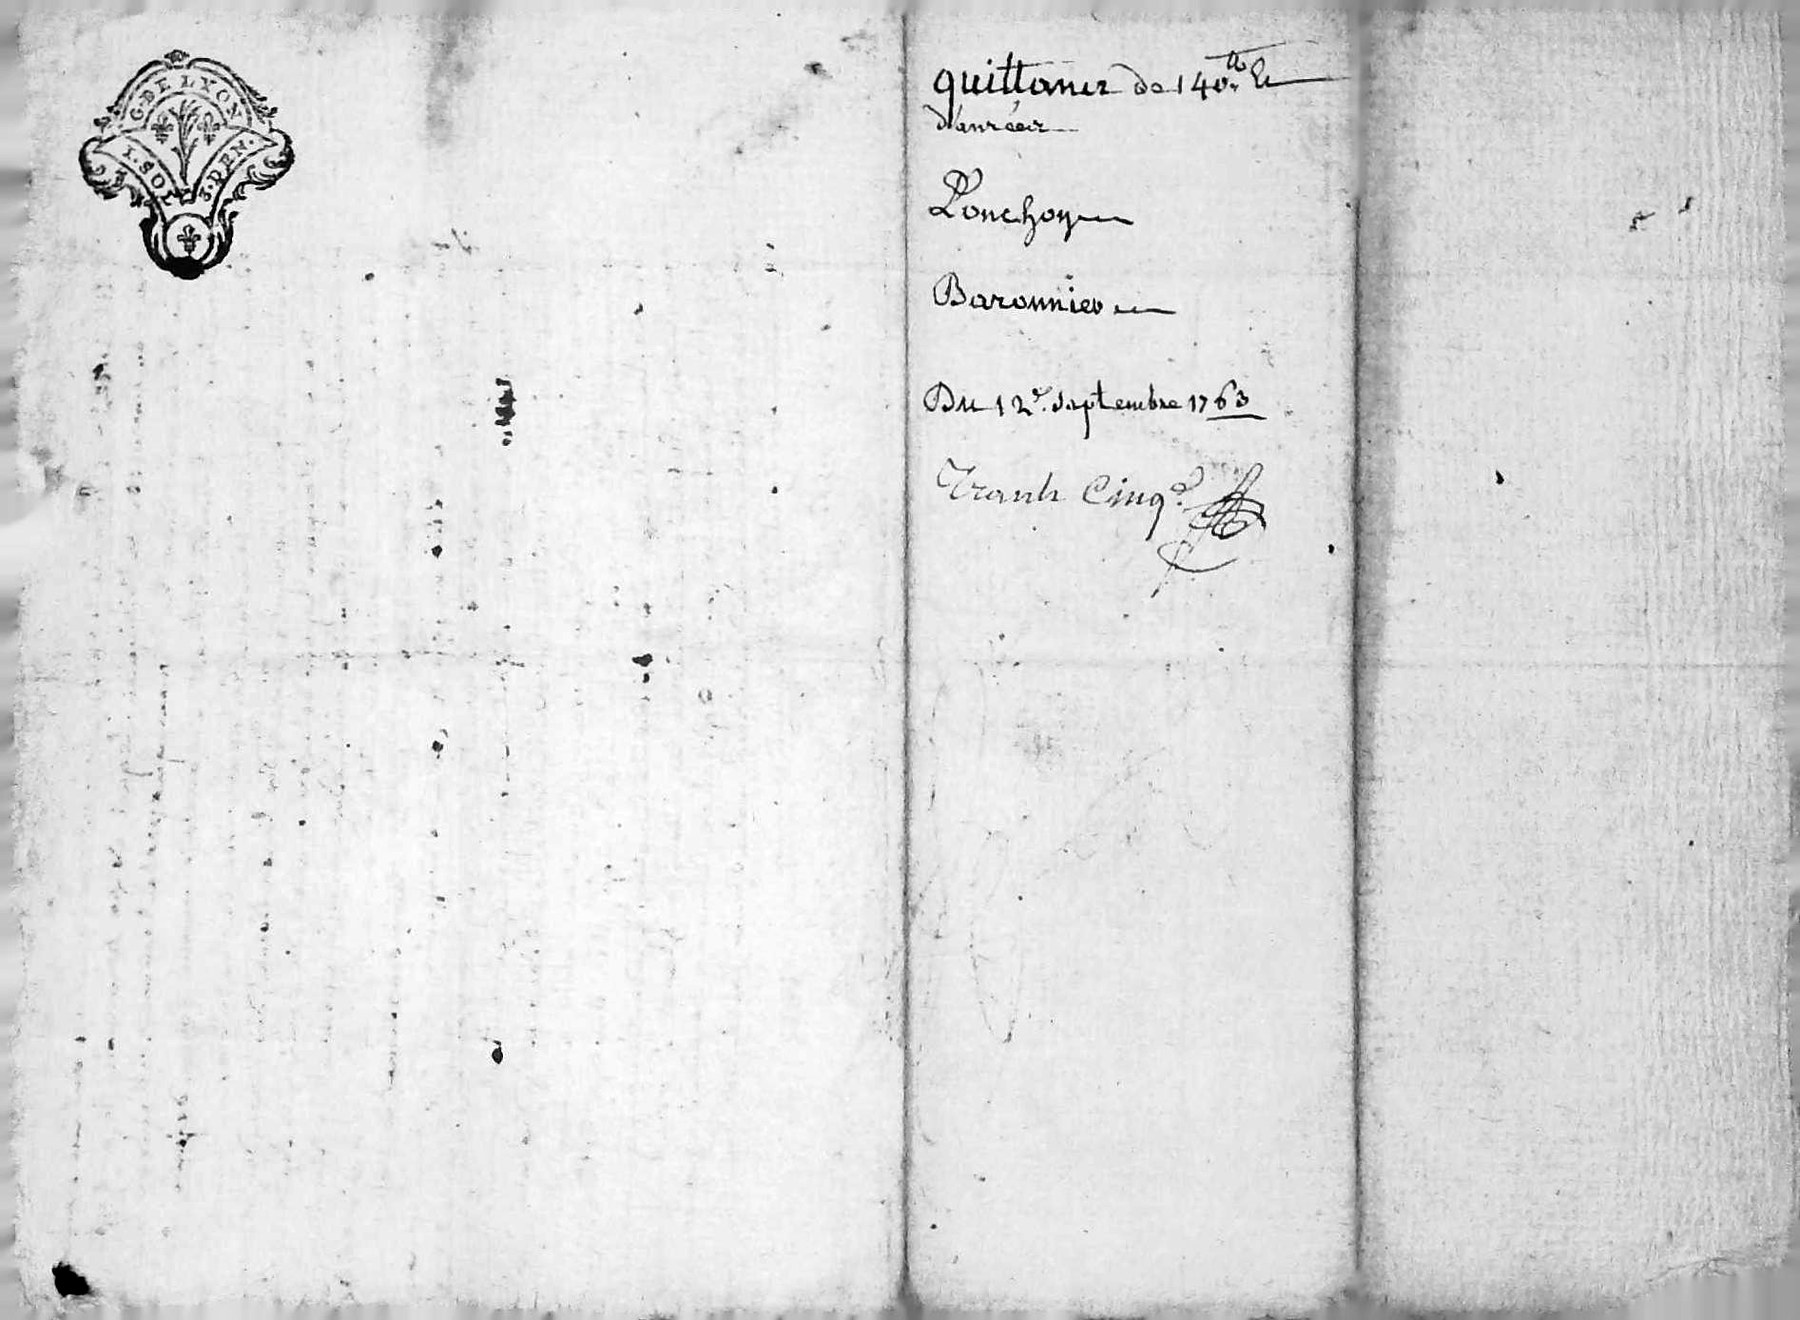 G. DE LYON
1. SOL 3. DEN.
quittance de 140.tt &
d'anrées
Ponchon
Baronnier
Du 12e. septembre 1763
Cinq